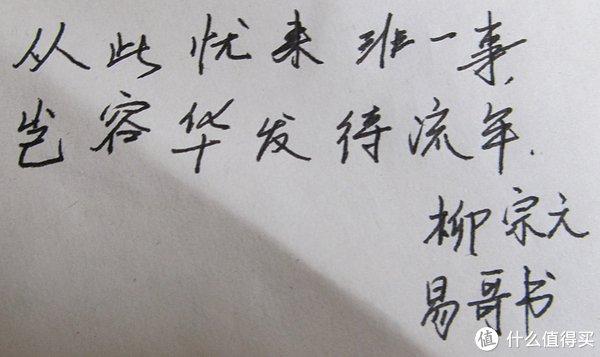 从此忧来非一事,
岂容华发待流年.
柳宗元
易哥书
值 什么值得买